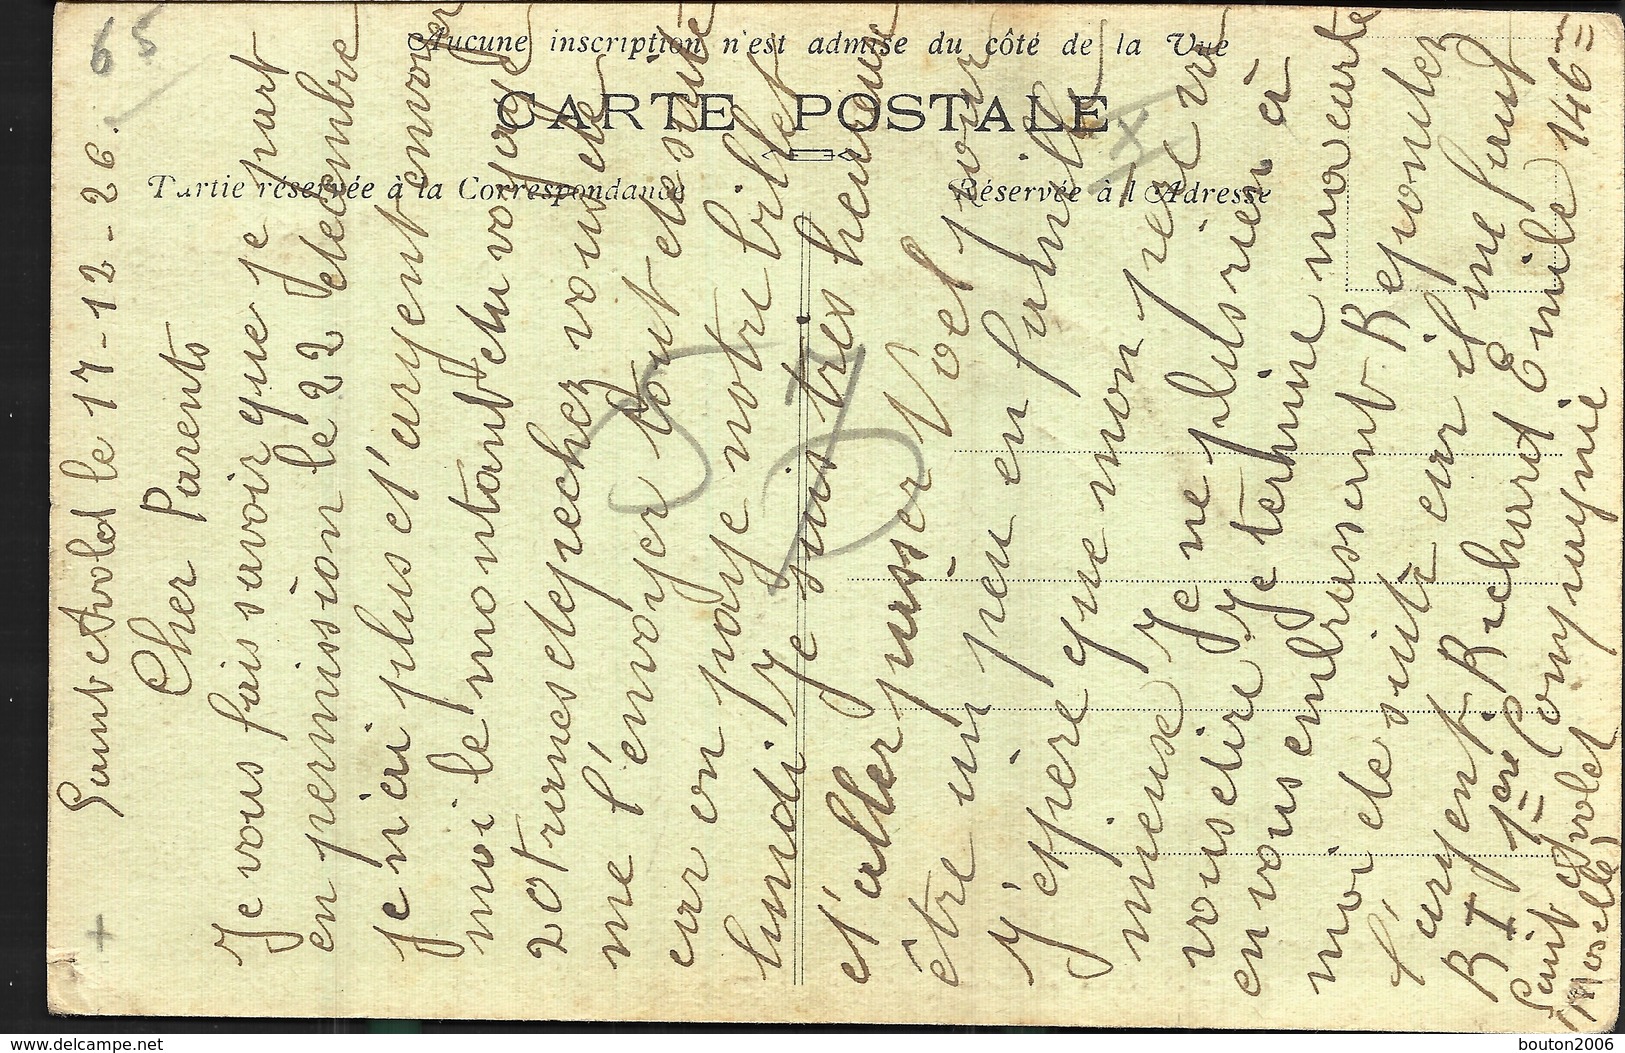 Aucune inscription n'est admise du côté de la Vue
CARTE POSTALE
Partie réservée à la Correspondance
Réservée à l'Adresse
65
57
Saint Avold le 17-12-26.
Cher Parents
Je vous fais savoir que je part
en permission le 22 decembre
Je n'ai plus d'argent envoyer
moi le montant du voyage
20 francs depechez vous de
me l'envoyer tout de suite
car on paye notre billet
lundi. Je suis tres heureux
d'aller passer Noel pour
être un peu en famille
J'espere que mon pere va
mieuse Je ne plus rien à
vous dire Je termine ma carte
en vous embrassant. Repondez
moi de suite car il me faut
l'argent. Richard Emile 146=eme
R I 1=ere Compagnie
Saint Avold
(Moselle)
delcampe.net
bouton2006